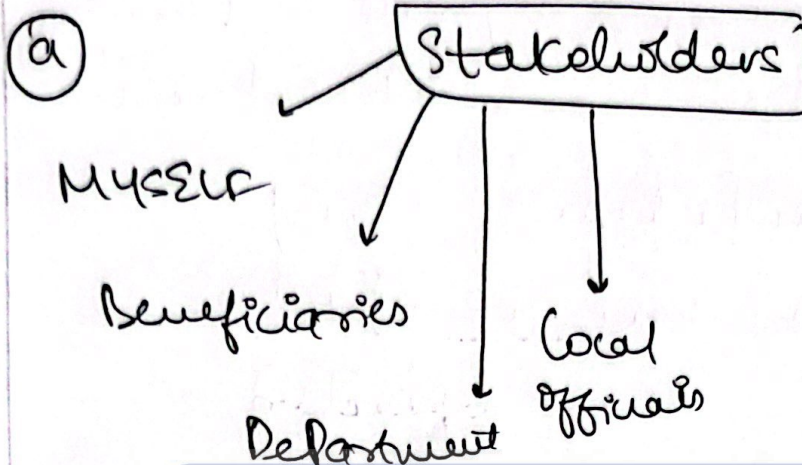 a
Stakeholders
MYSELF
Beneficiaries
Local
officials
Department